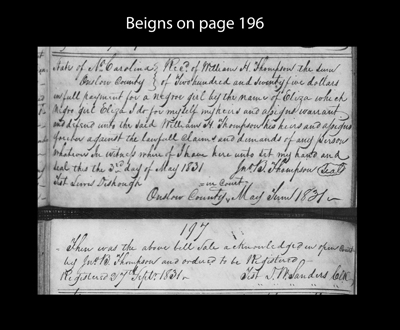 Beigns on page 196
State of No Carolina } Recd of William H Thompson the sum
Onslow County } of Two hundred and seventy five dollars
in full payment for a Negroe girl by the name of Eliza which
Negroe girl Eliza I do for myself my heirs and assigns warrant
and defend unto the said William H Thompson his heirs and assigns
forever against the lawfull Claims and demands of any person
whatever In witness whereof I have here unto set my hand and
seal this the 3rd day of May 1831 Jno. B. Thompson (Seal)
Test Lewis Dishough
in Court
Onslow County May Term 1831
197
Then was the above bill Sale acknowledged in open Court
by Jno. B Thompson and ordered to be Registered
Registered 27th Septr. 1831 Test J. W. Sanders Clk